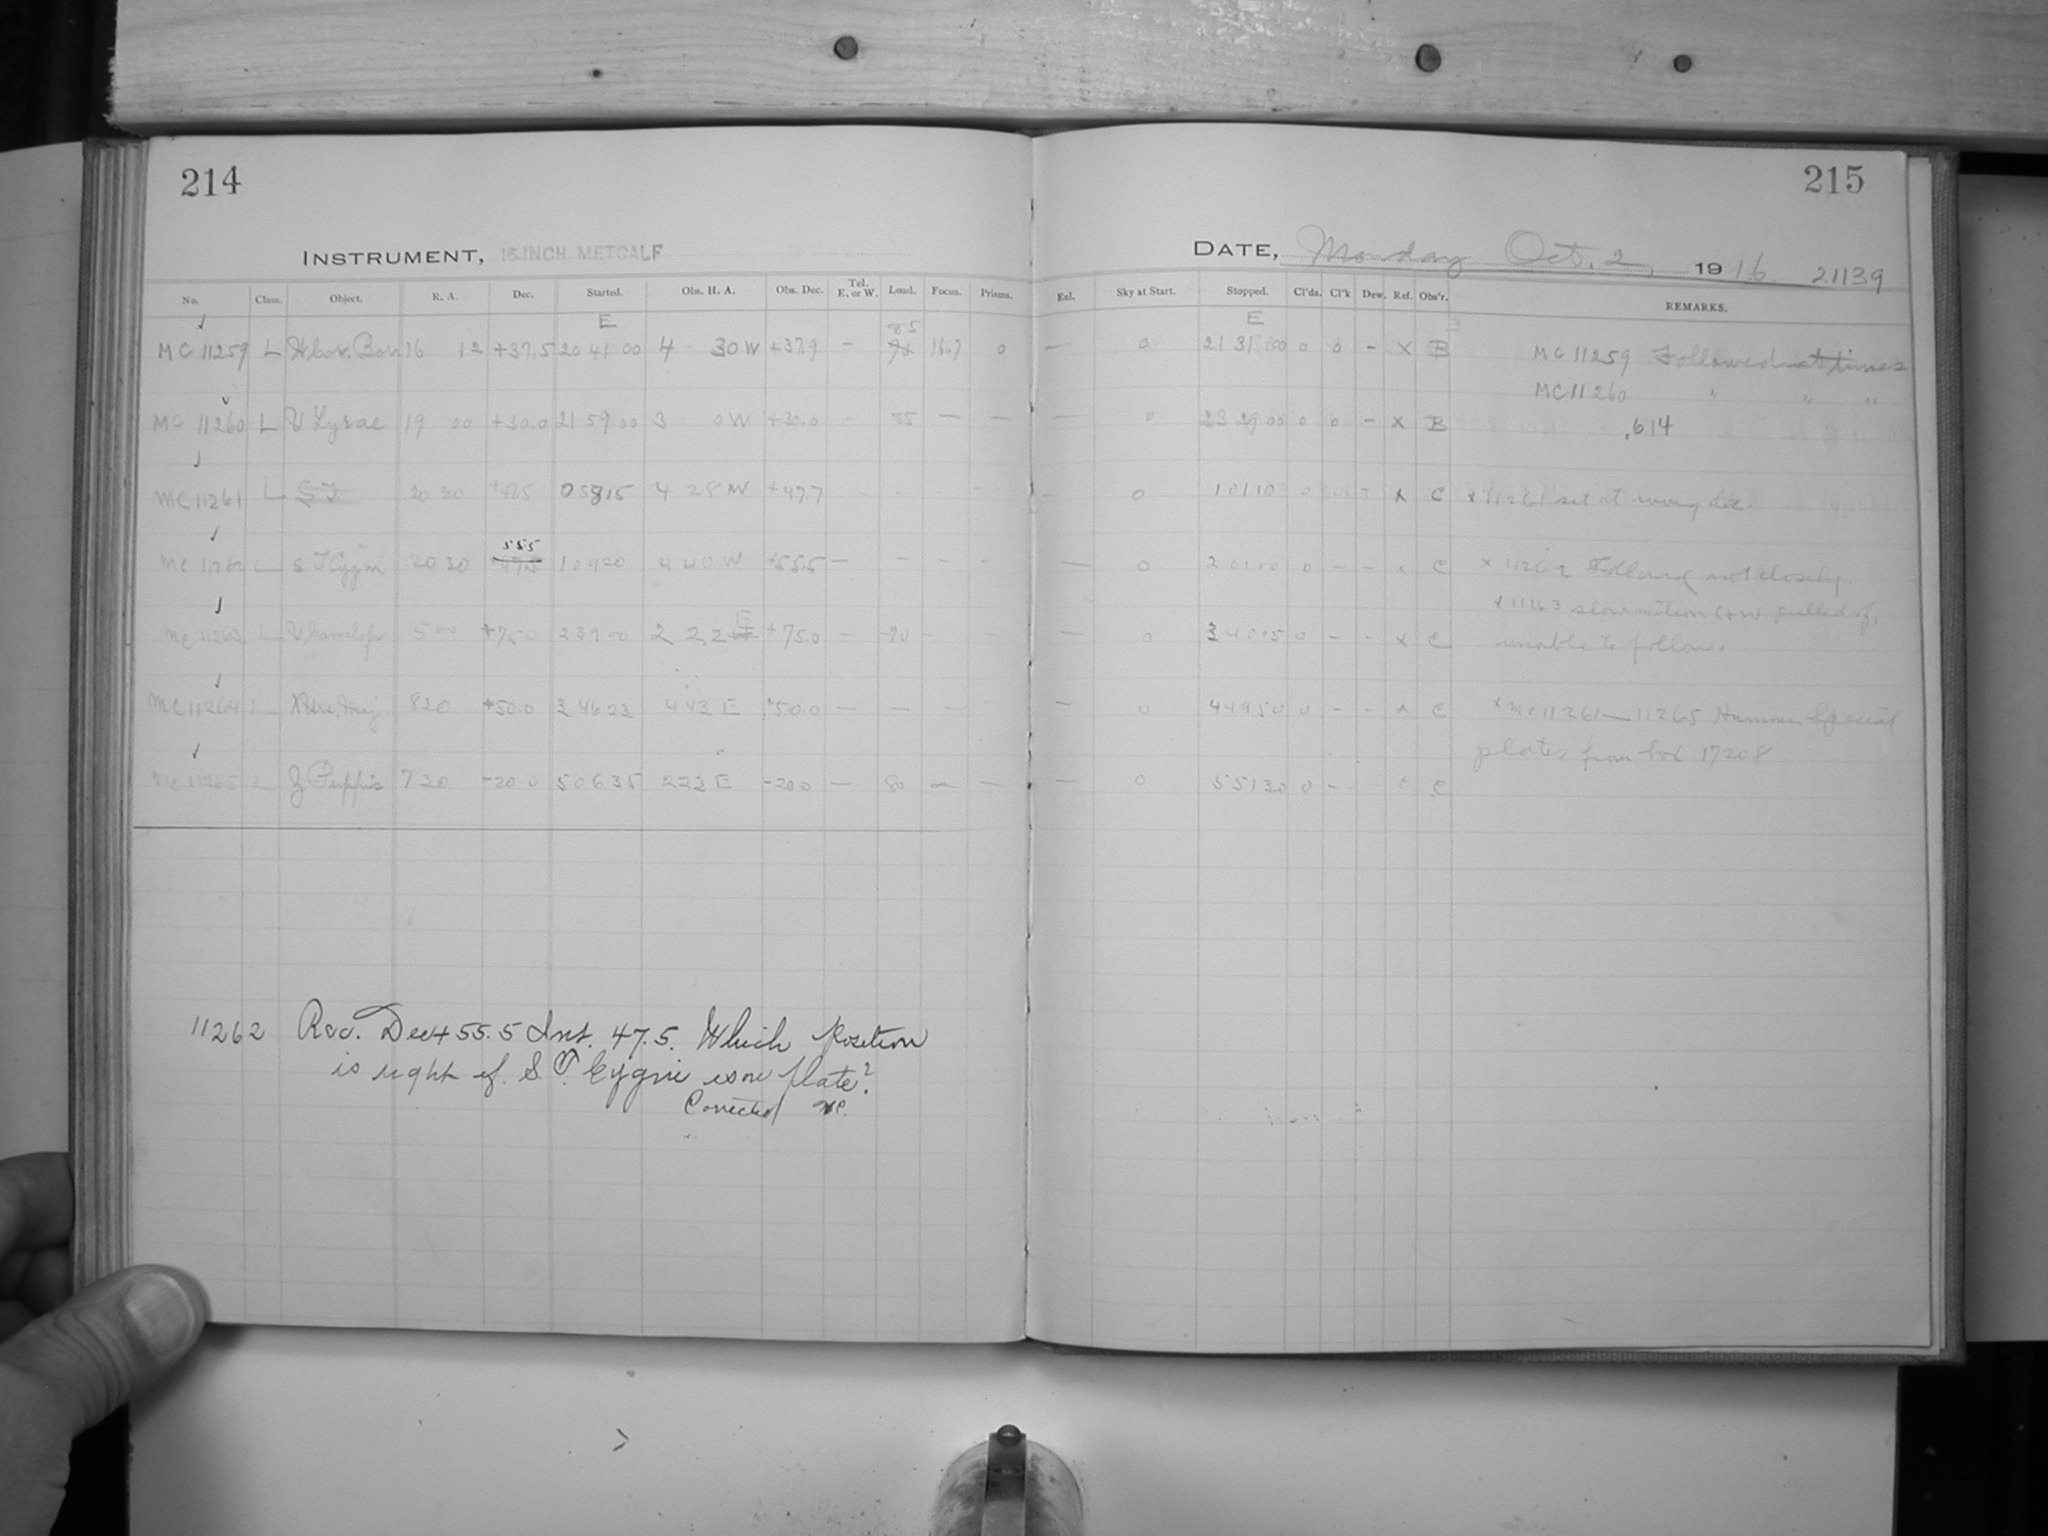 214
INSTRUMENT, 16-INCH METCALF
No. Class. Object. R. A. Dec. Started. Obs. H. A. Obs. Dec. Tel. E. or W. Load. Focus. Prisms.
E
85
MC 11259 L 16 12 +37.5 20 41 00 4 30 W +37.9 - 16.7 0
MC 11260 L U Lyrae 19 00 +30.0 21 59 00 3 0 W +30.0 - 85 — —
MC 11261 L S.T. 20 30 +47.5 0 58 15 4 28 W +47.7 - - - -
55.5
MC 11262 L S T Cygni 20 30 +47.5 1 09 20 4 40 W +55.5 — - - -
MC 11263 L 5 00 +75.0 2 39 00 2 22 E +75.0 — 90 -
MC 11264 L 8 20 +50.0 3 46 22 4 43 E +50.0 — — — —
MC 11265 L Z Puppis 7 20 -20 0 5 06 35 2 22 E -20.0 — 80 — —
11262 Rec. Dec + 55.5 Inst. 47.5. Which position
is right if S.T. Cygni is on plate?
Corrected
215
DATE, Monday Oct. 2, 1916 21139
Exl. Sky at Start. Stopped. Cl'ds. Cl'k Dew. Ref. Obs'r. REMARKS.
E
— 0 21 31 00 0 0 - X B MC 11259 Followed at times
MC 11260 " " "
— 0 23 29 00 0 0 - X B .614
- 0 1 01 10 0 - X C x 11261 set at wrong dec.
— 0 2 01 10 0 - - x C x 11262 Followed not closely.
x 11263 slow motion cow pulled off,
— 0 3 40 05 0 - - X C unable to follow.
— 0 4 49 50 0 - - x C x MC 11261—11265 Hammer Special
plates from box 17208
— 0 5 51 30 0 - C